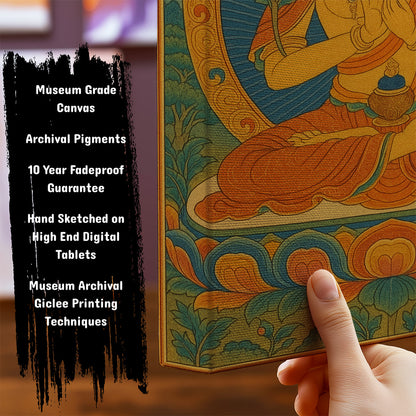 Museum Grade
Canvas
Archival Pigments
10 Year Fadeproof
Guarantee
Hand Sketched on
High End Digital
Tablets
Museum Archival
Giclee Printing
Techniques